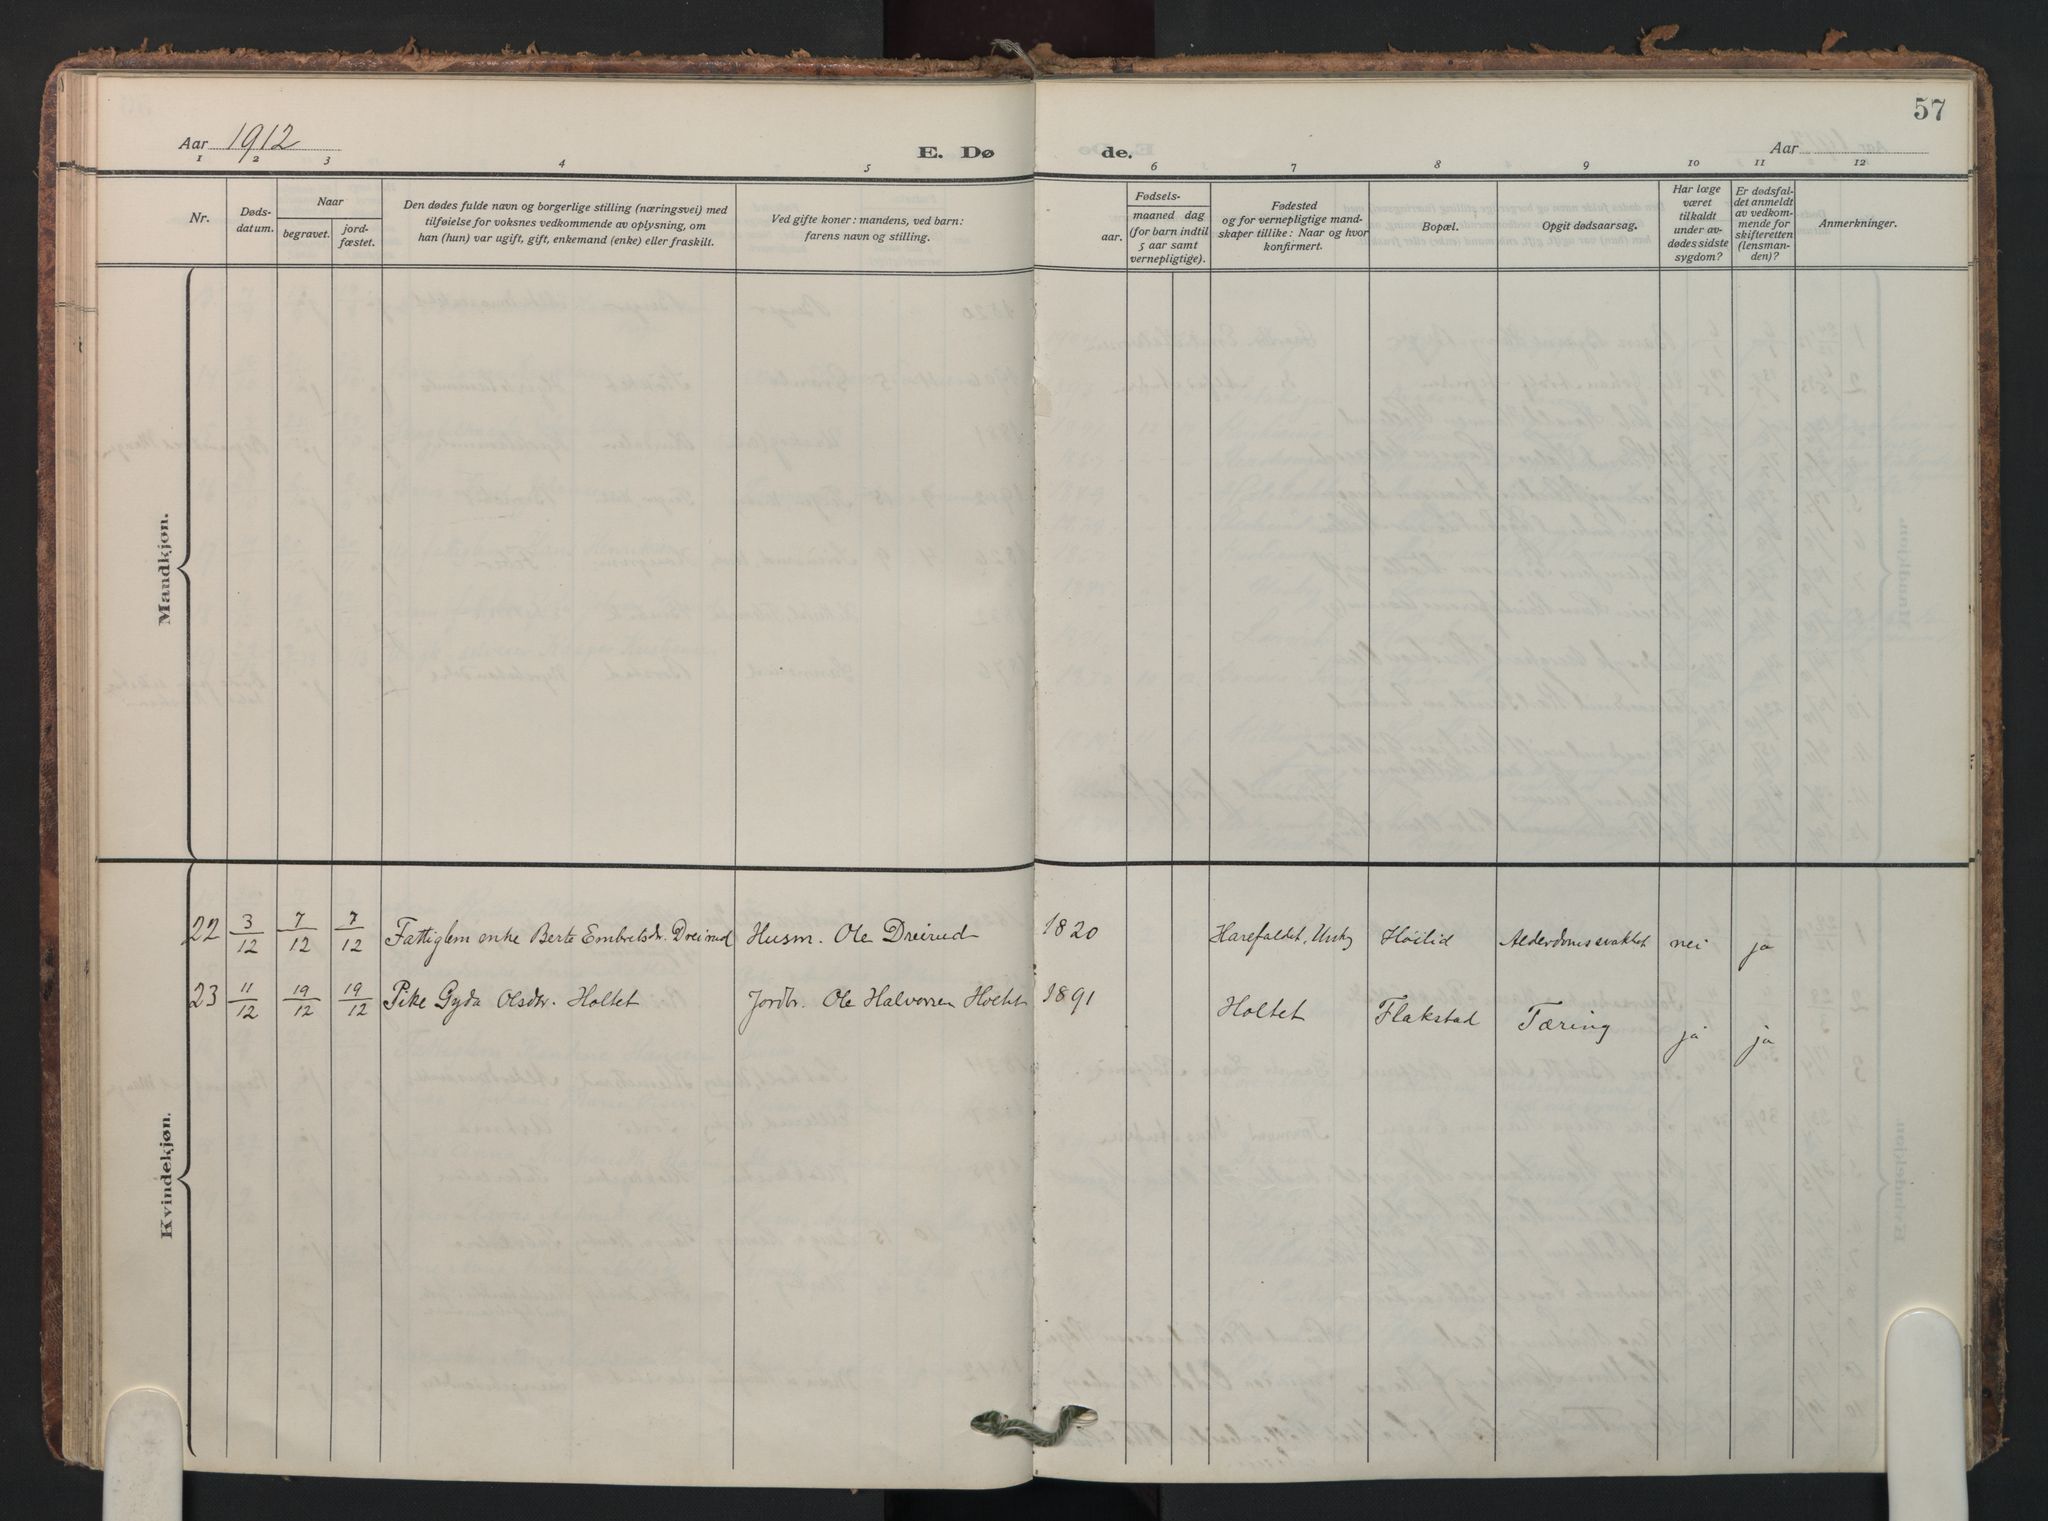 57
Aar 1912
E. Dø
de.
Aar
1 2 3 4 5 6 7 8 9 10 11 12
Nr.
Døds-
datum.
Naar
begravet.
jord-
fæstet.
Den dødes fulde navn og borgerlige stilling (næringsvei) med
tilføielse for voksnes vedkommende av oplysning, om
han (hun) var ugift, gift, enkemand (enke) eller fraskilt.
Ved gifte koner: mandens, ved barn:
farens navn og stilling.
aar.
Fødsels-
maaned dag
(for barn indtil
5 aar samt
vernepligtige).
Fødested
og for vernepligtige mand-
skaper tillike: Naar og hvor
konfirmert.
Bopæl.
Opgit dødsaarsag.
Har læge
været
tilkaldt
under av-
dødes sidste
sygdom?
Er dødsfal-
det anmeldt
av vedkom-
mende for
skifteretten
(lensman-
den)?
Anmerkninger.
Mandkjøn.
Kvindekjøn.
22 3/12 7/12 7/12 Fattiglem enke Berte Embretsdr. Dreirud Husm. Ole Dreirud 1820 Harefaldet, Urskg Höilid Alderdomssvakhet nei ja
23 11/12 19/12 19/12 Pike Gyda Olsdtr. Holtet Jordbr. Ole Halvorsen Holtet 1891 Holtet Flakstad Tæring ja ja